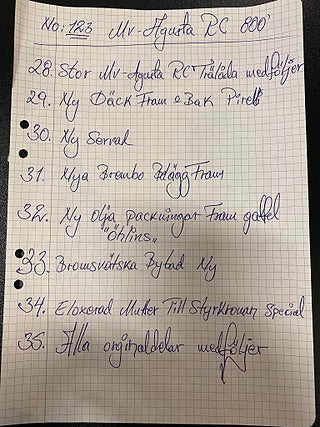 No: 123 Mv-Agusta RC 800'
28. Stor Mv-Agusta RC Trälåda medföljer
29. Ny Däck Fram & Bak Pirelli
30. Ny Servad
31. Nya Brembo Belägg Fram
32. Ny olja packningar Fram gaffel
"Öhlins"
33. Bromsvätska Bytad Ny
34. Eloxerad Mutter Till Styrkronan Special
35. Alla orginaldelar medföljer